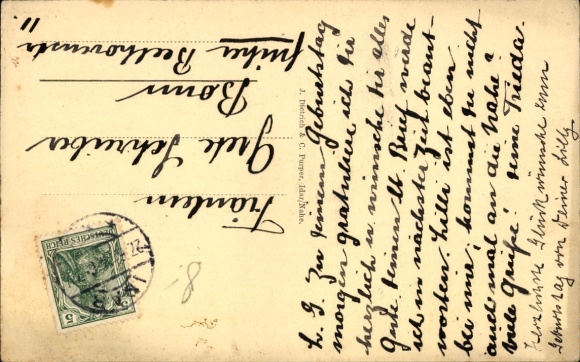 L. G. Zu Deinem Geburtstag
morgen gratuliere ich Dir
herzlich u. wünsche Dir alles
Gute. Deinen lb. Brief werde
ich in nächster Zeit beant-
worten. Lilli ist eben
bei mir; kommst Du nicht
auch mal an die Nahe?
Viele Grüße! Deine Frieda.
Herzlichste Glückwünsche zum
Geburtstag von Deiner Lilly
J. Dietrich & C. Purper, Idar/Nahe.
Fräulein
Grete Schreiber
Bonn
früher Beethovenstr
11.
DEUTSCHES REICH
5
IDAR
8.-